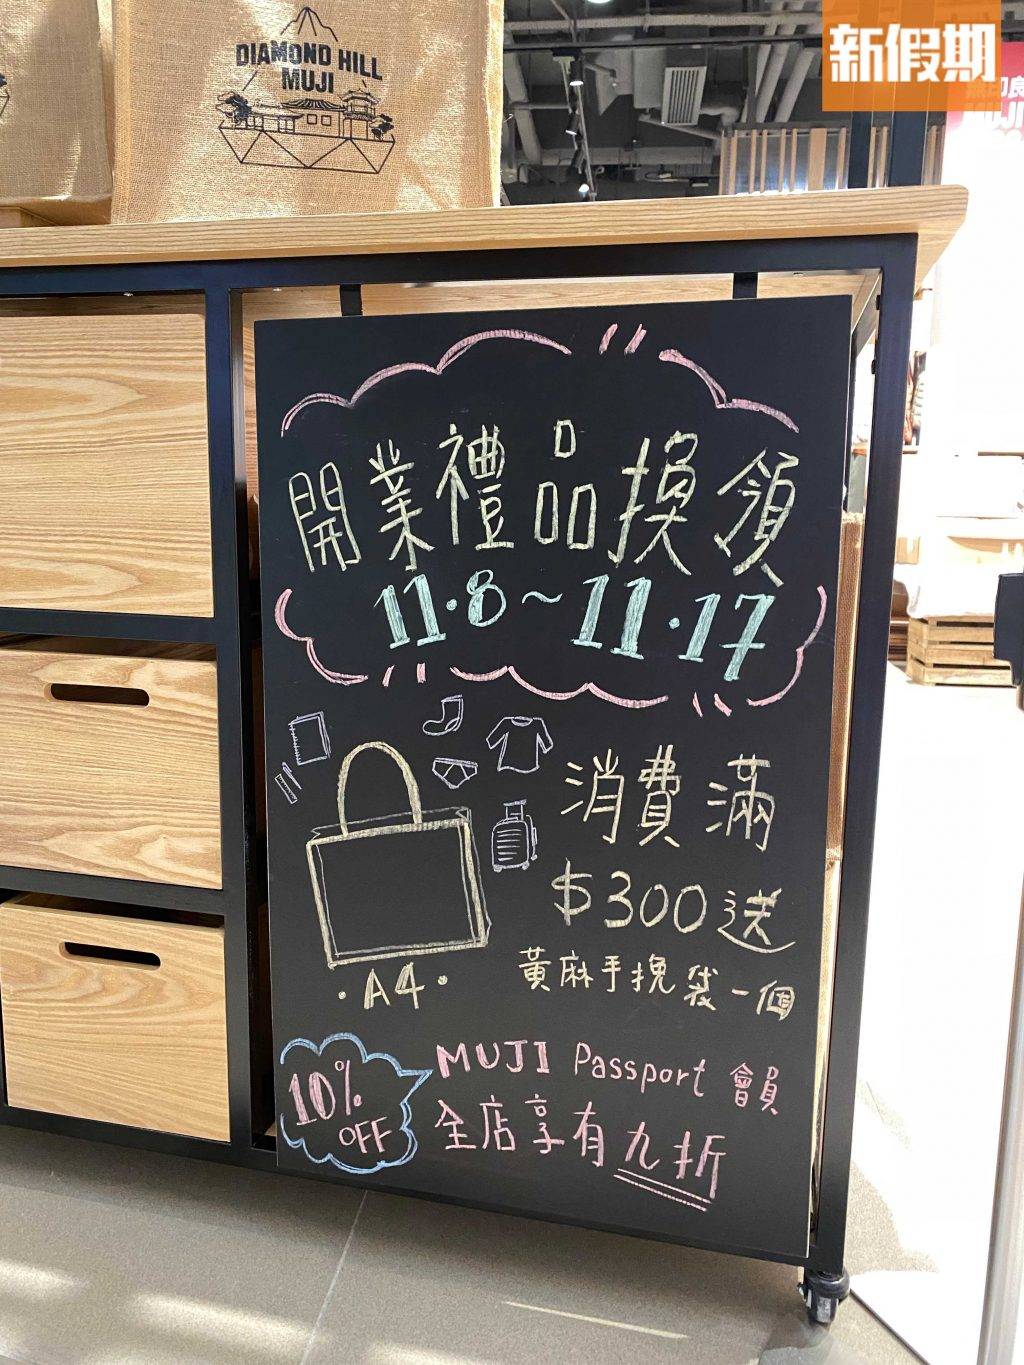 新假期
DIAMOND HILL
MUJI
無印良
MUJI
開業禮品換領
11.8~11.17
消費滿
$300送
黃麻手挽袋一個
·A4·
10%
OFF
MUJI Passport 會員
全店享有九折